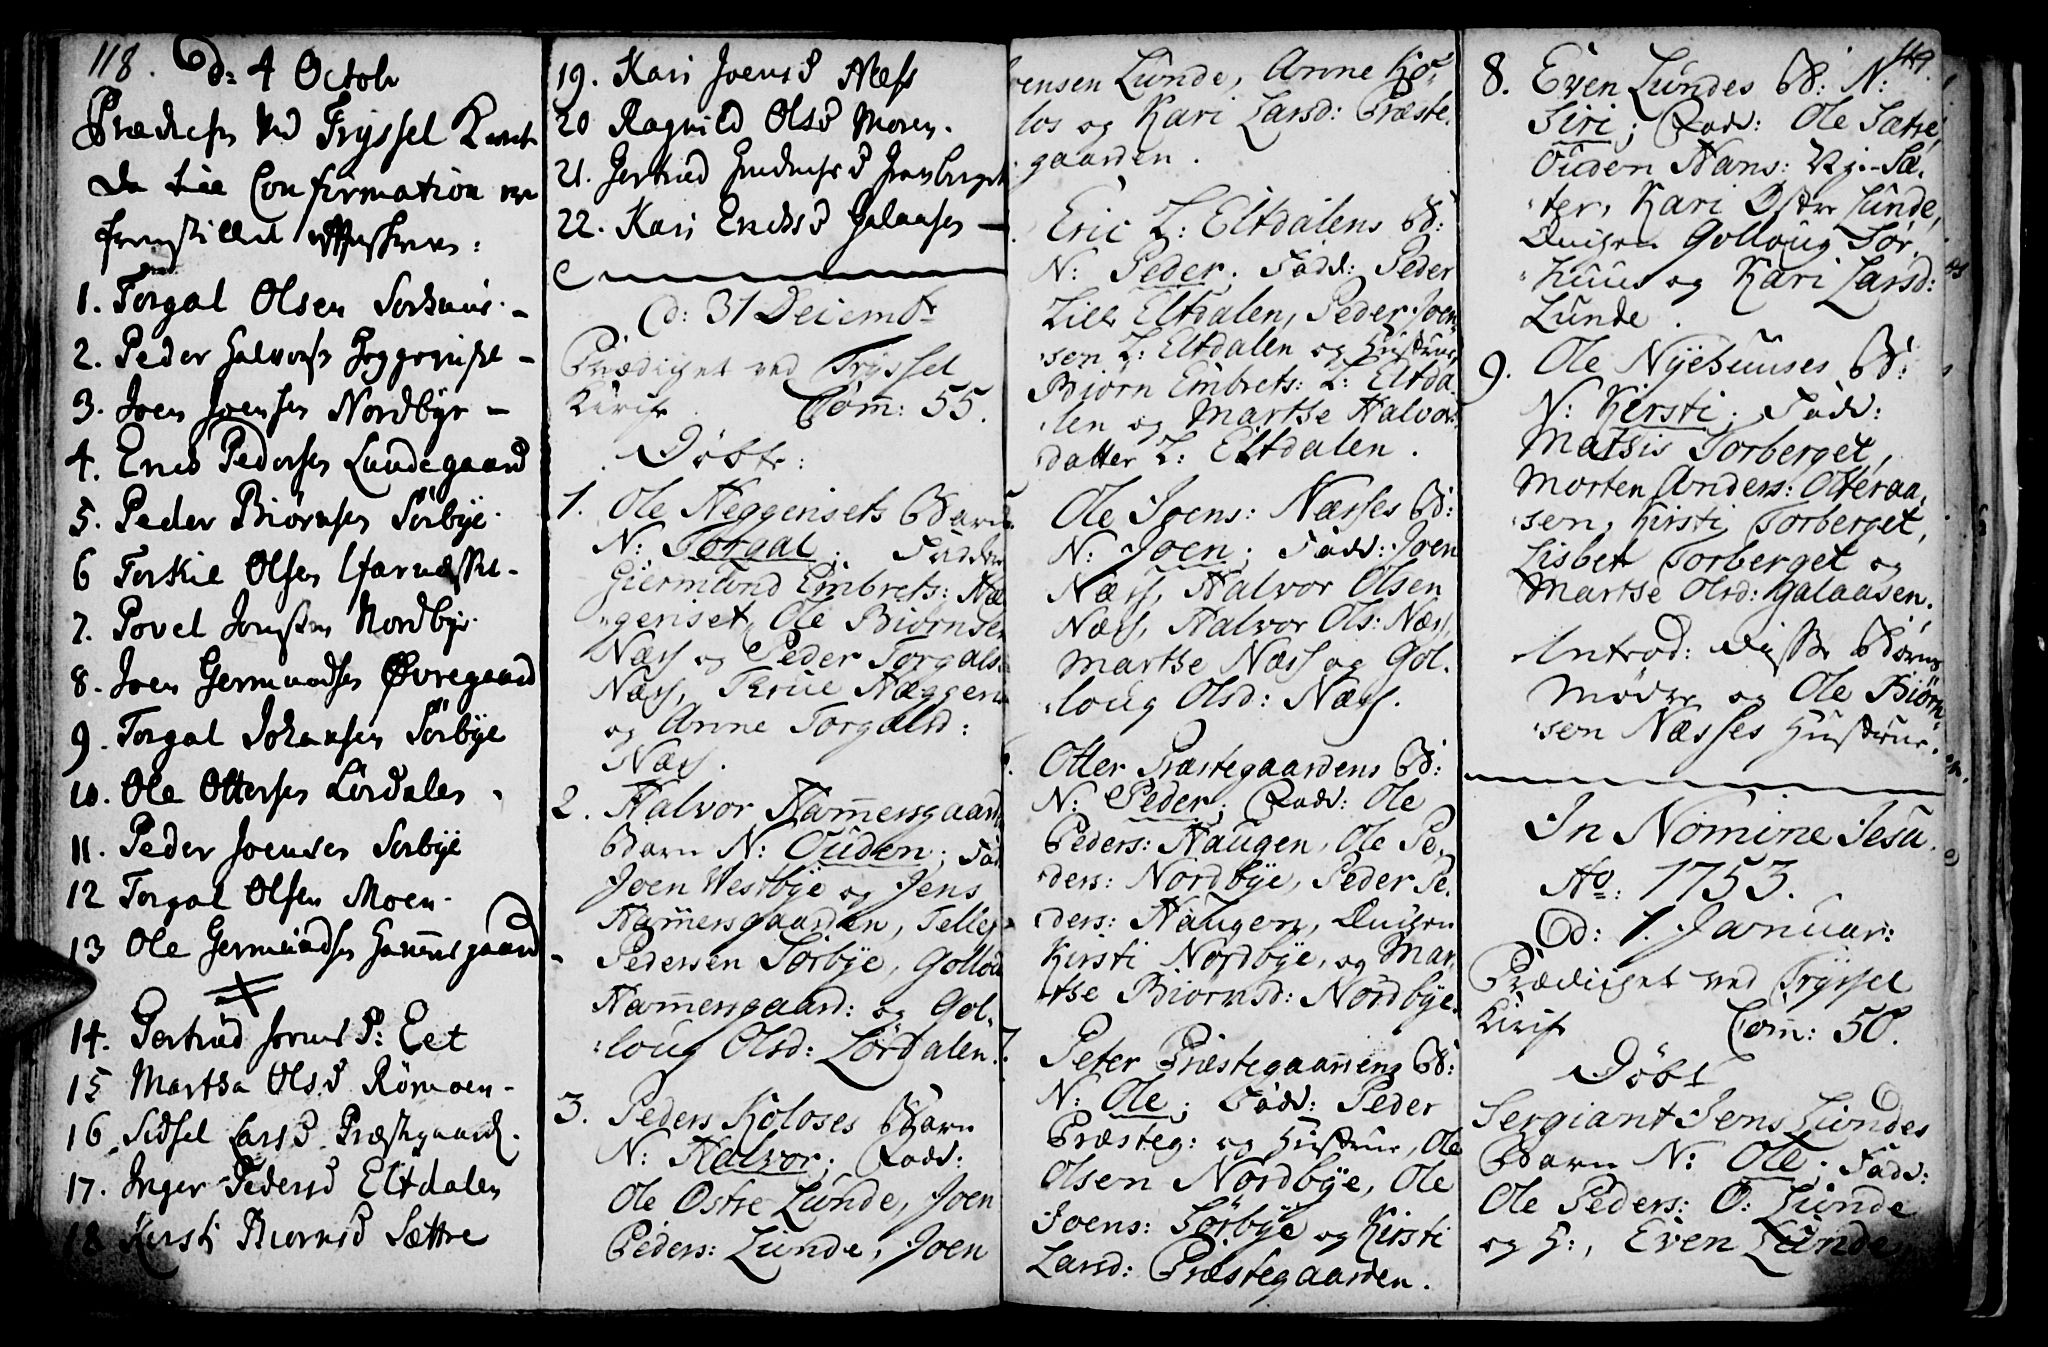 118. d: 4 Octobr
Prædiket ved Tryssel Kirke
da till Confirmation
fremstillet
1. Torgal Olsen Sorhuus
2. Peder Halvorsen Heggeriset
3. Joen Joensen Nordbye
4. Erich Pedersen Lundegaard
5. Peder Biørnsen Sørbye
6 Torkil Olsen
7. Povel Jonsen Nordbye
8. Joen Germundsen Øvregaard
9. Torgal Johansen Sørbye
10. Ole Ottersen Lördalen
11. Peder Joensen Sörbye
12 Torgal Olsen Moen
13 Ole Germundsen Hammersgaard
14. Gertrud Eet
15 Martha Olsd Römoen
16 Sidsel Larsd Præstegaard
17. Inger Pedersd Eltdalen
18 Kirsti Biornsd Sættre
19. Kari Joensd Næss
20 Ragnild Olsd Moren
21. Gertrud
22. Kari Ericksd Galaasen
d: 31 Decembr
Prædiket ved Tryssel
Kirke Com̄: 55.
Döbte:
1. Ole Heggerisets Barn
N: Torgal; Fadder
Giermund Embrets: Hæ
geriset, Ole Biörnsen
Næss og Peder Torgals
Næss, Thrue Hæggeri
og Anne Torgalsd:
Næss.
2. Halvor Ham̄ersgaard
Barn N: Ouden; Fad
Joen Westbye og Jens
Ham̄ersgaarden, Tellef
Pedersen Sörbye, Gollou
Ham̄ersgaard: og Gol-
loug Olsd: Lördalen.
3. Peders Koloses Barn
N: Halvor; Fadd:
Ole Ostre Lunde, Joen
Peders: Lunde, Joen
ensen Lunde, Anne Ko-
los og Kari Larsd: Præste-
gaarden.
Eric L: Eltdalens B:
N: Peder. Fadd: Peder
Lille Eltdalen, Peder Joen-
sen L: Eltdalen og Hustrue,
Biörn Embrets: L: Eltda-
len og Marthe Halvor-
datter L: Eltdalen.
Ole Joens: Næsses B:
N: Joen; Fadd: Joen
Næss, Halvor Olsen
Næss, Halvor Ols: Næss,
Marthe Næss og Gol-
loug Olsd: Næss.
Otter Præstegaardens B:
N: Peder; Fadd: Ole
Peders: Haugen, Ole Pe-
ders: Nordbye, Peder Pe-
ders: Haugen, Quigen
Kirsti Nordbye, og Mar-
the Biornsd: Nordbye.
7. Peter Præstegaar̄ens B:
N: Ole; Fadd: Peder
Præsteg: og Hustrue, Ole
Olsen Nordbye, Ole
Joens: Sörbye og Kirsti
Larsd: Præstegaarden.
119.
8. Even Lundes B: N:
Siri; Fadd: Ole Sætre,
Ouden Hans: Ny-Sæ-
ter, Kari Østre Lunde,
Quigen Golloug Sör-
huus og Kari Larsd:
Lunde.
9. Ole Nyehuuses B:
N: Kirsti; Fadd:
Mathis Torberget,
Morten Anders: Otteraa-
sen, Kirsti Torberget,
Lisbet Torberget og
Marthe Olsd: Galaasen.
Introd: disse Börns
Mödre og Ole Biörn-
sen Næsses Hustrue.
In Nomine Jesu.
Ao: 1753.
d: 1. Januar:
Prædiket ved Tryssel
Kirke Com̄: 50.
Döbt
Sergiant Jens Lundes
Barn N: Ole; Fadd:
Ole Peders: O: Lunde
og H:, Even Lunde